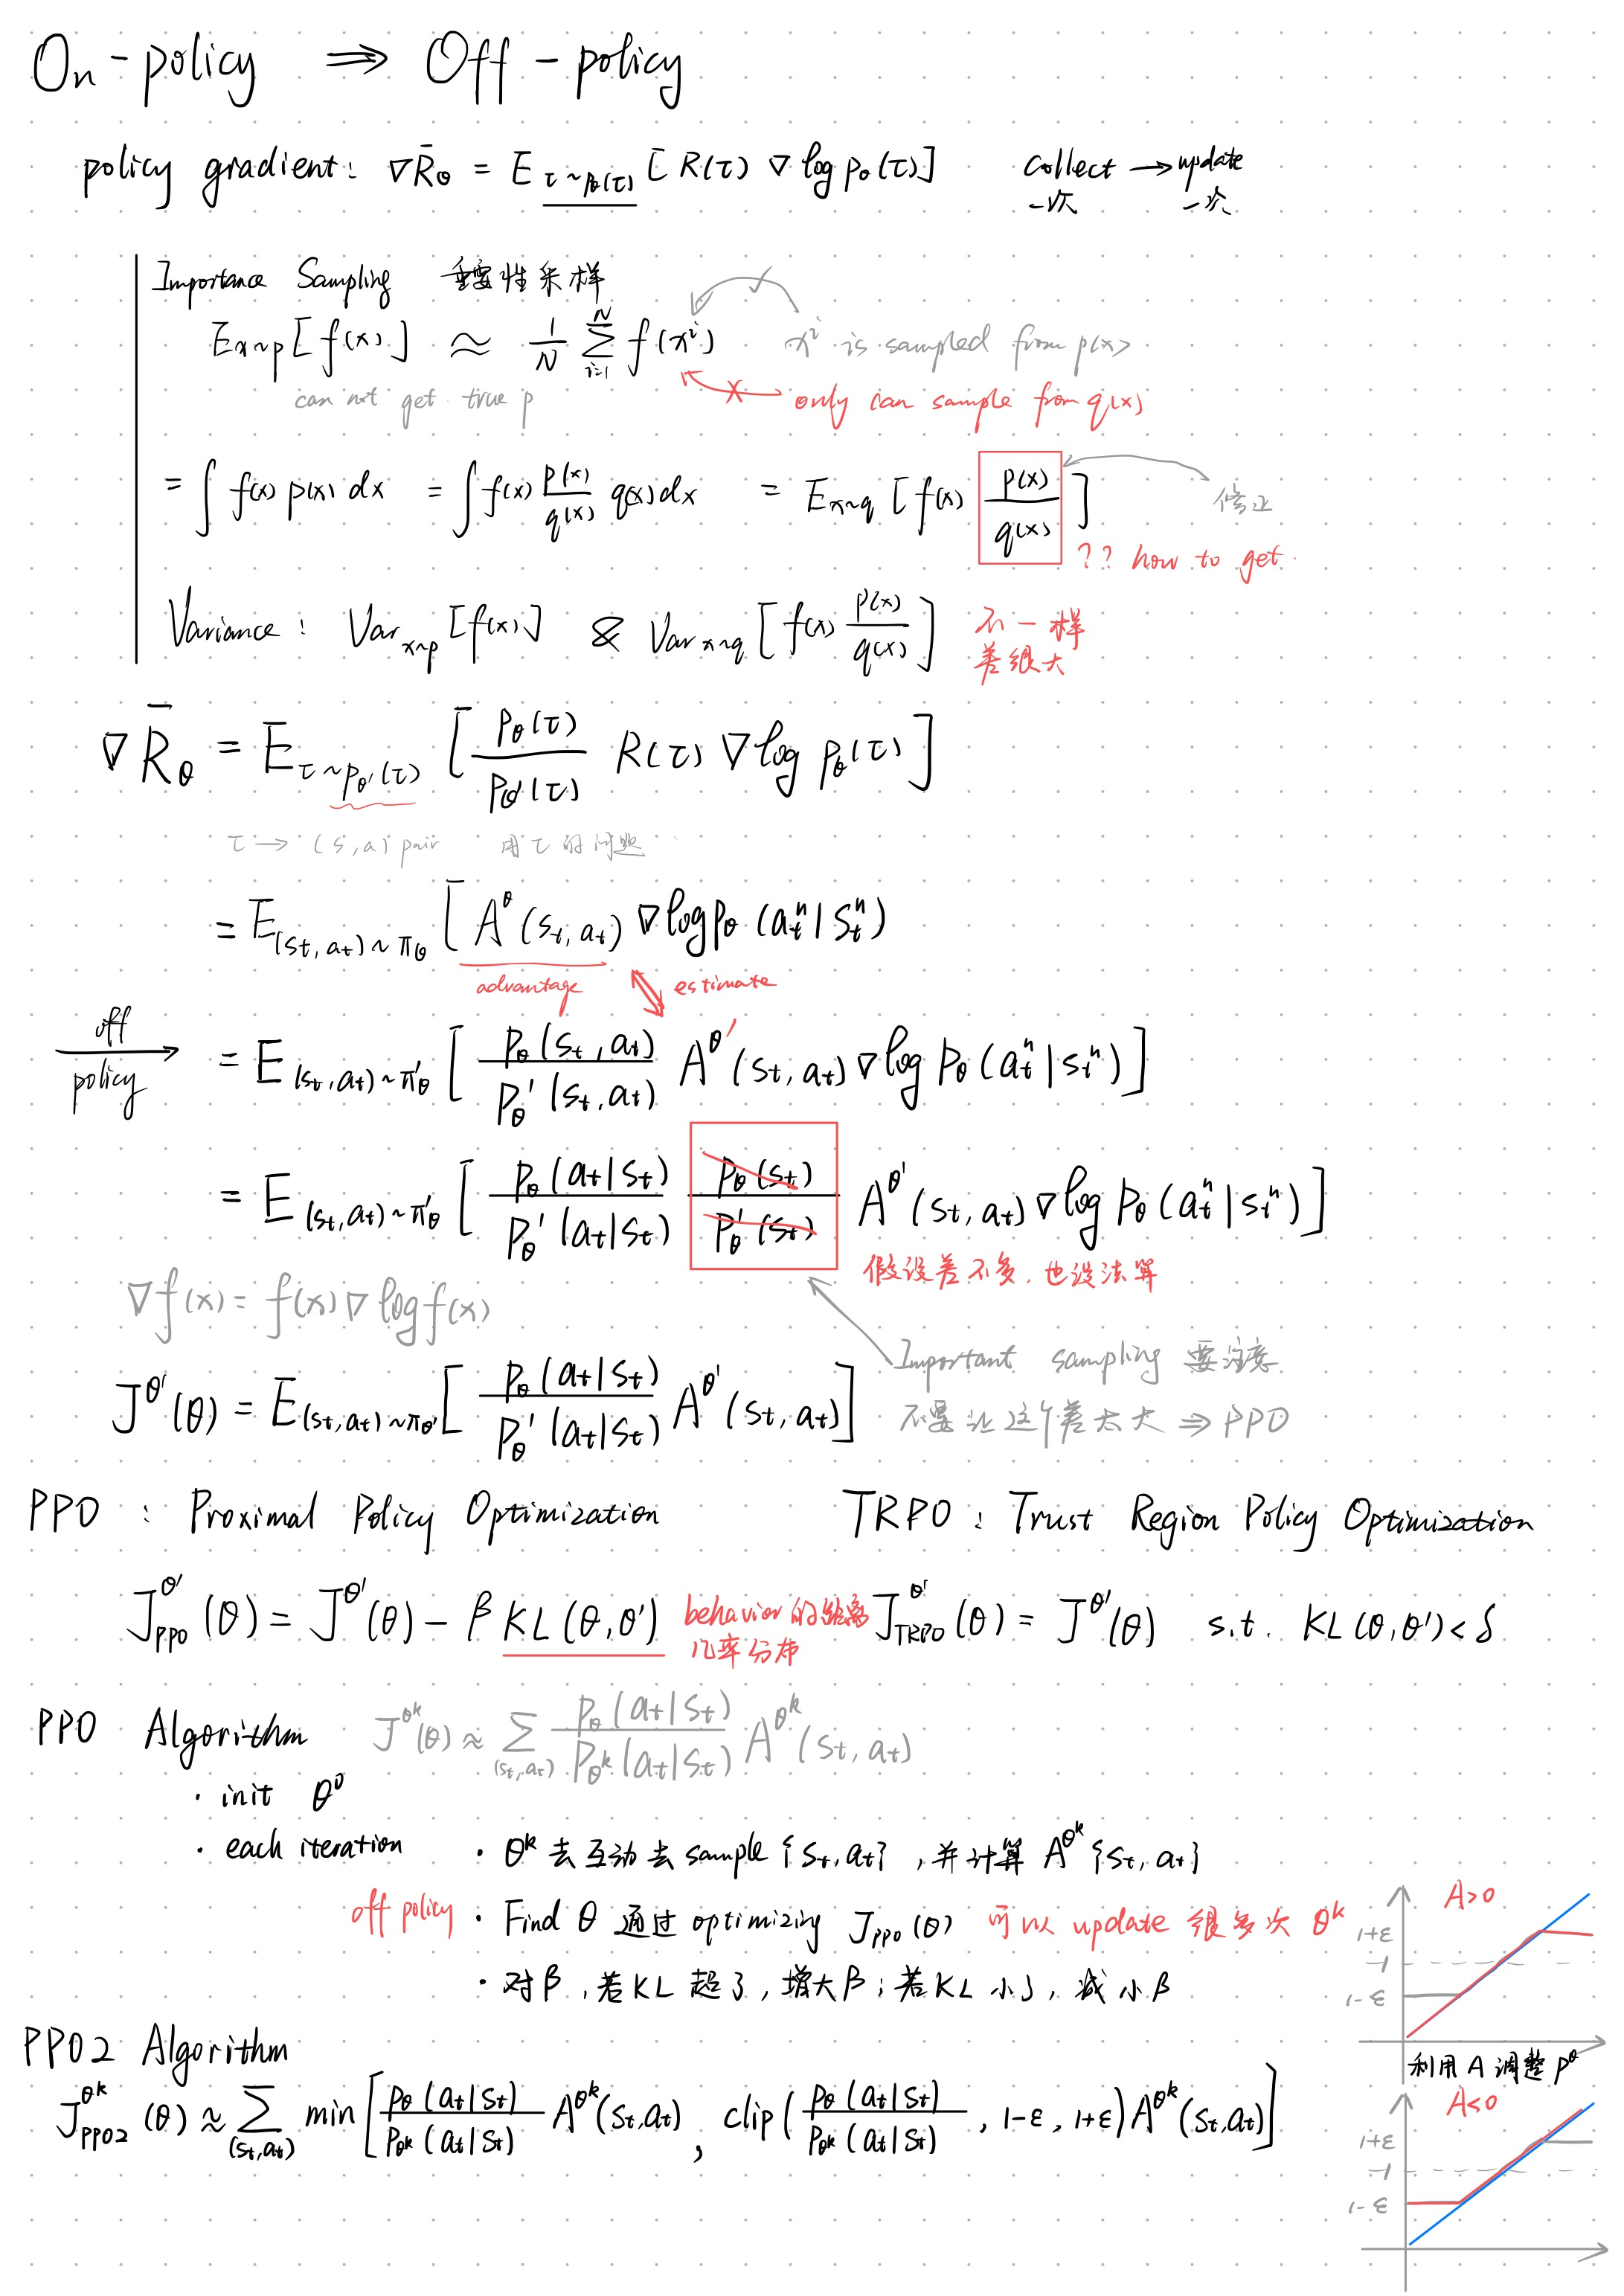 On-policy ⇒ Off-policy
policy gradient: ∇R̄θ = E τ~pθ(τ) [R(τ) ∇ log pθ(τ)] collect → update
一次 一次
Importance Sampling 重要性采样
Ex~p[f(x)] ≈ 1/N Σ_{i=1}^{N} f(x^i) x^i is sampled from p(x)
can not get true p × only can sample from q(x)
= ∫ f(x) p(x) dx = ∫ f(x) p(x)/q(x) q(x) dx = Ex~q [f(x) p(x)/q(x)] 修正
?? how to get
Variance: Var x~p [f(x)] & Var x~q [f(x) p(x)/q(x)] 不一样
差很大
∇R̄θ = E τ~pθ'(τ) [pθ(τ)/pθ'(τ) R(τ) ∇ log pθ(τ)]
τ → (s,a) pair 用τ的问题
= E(st,at)~πθ [A^θ(st,at) ∇ log pθ(at^n|st^n)
advantage estimate
off policy → = E(st,at)~π'θ [pθ(st,at)/p'θ(st,at) A^θ'(st,at) ∇ log pθ(at^n|st^n)]
= E(st,at)~π'θ [pθ(at|st)/p'θ(at|st) pθ(st)/p'θ(st) A^θ'(st,at) ∇ log pθ(at^n|st^n)]
假设差不多,也没法算
∇f(x) = f(x) ∇ log f(x)
Important sampling 要注意
J^θ'(θ) = E(st,at)~πθ' [pθ(at|st)/p'θ(at|st) A^θ'(st,at)] 不要让这个差太大 ⇒ PPO
PPO : Proximal Policy Optimization TRPO : Trust Region Policy Optimization
J_PPO^θ'(θ) = J^θ'(θ) - β KL(θ,θ') behavior的距离 J_TRPO^θ'(θ) = J^θ'(θ) s.t. KL(θ,θ') < δ
几率分布
PPO Algorithm J^θk(θ) ≈ Σ(st,at) pθ(at|st)/pθk(at|st) A^θk(st,at)
· init θ^0
· each iteration · θ^k 去互动去 sample {st,at}, 并计算 A^θk{st,at}
off policy · Find θ 通过 optimizing J_PPO(θ) 可以 update 很多次 θ^k
· 对β,若KL超了,增大β;若KL小了,减小β
A>0
1+ε
1
1-ε
利用A调整p^θ
PPO2 Algorithm
J_PPO2^θk(θ) ≈ Σ(st,at) min[pθ(at|st)/pθk(at|st) A^θk(st,at), clip(pθ(at|st)/pθk(at|st), 1-ε, 1+ε) A^θk(st,at)]
A<0
1+ε
1
1-ε